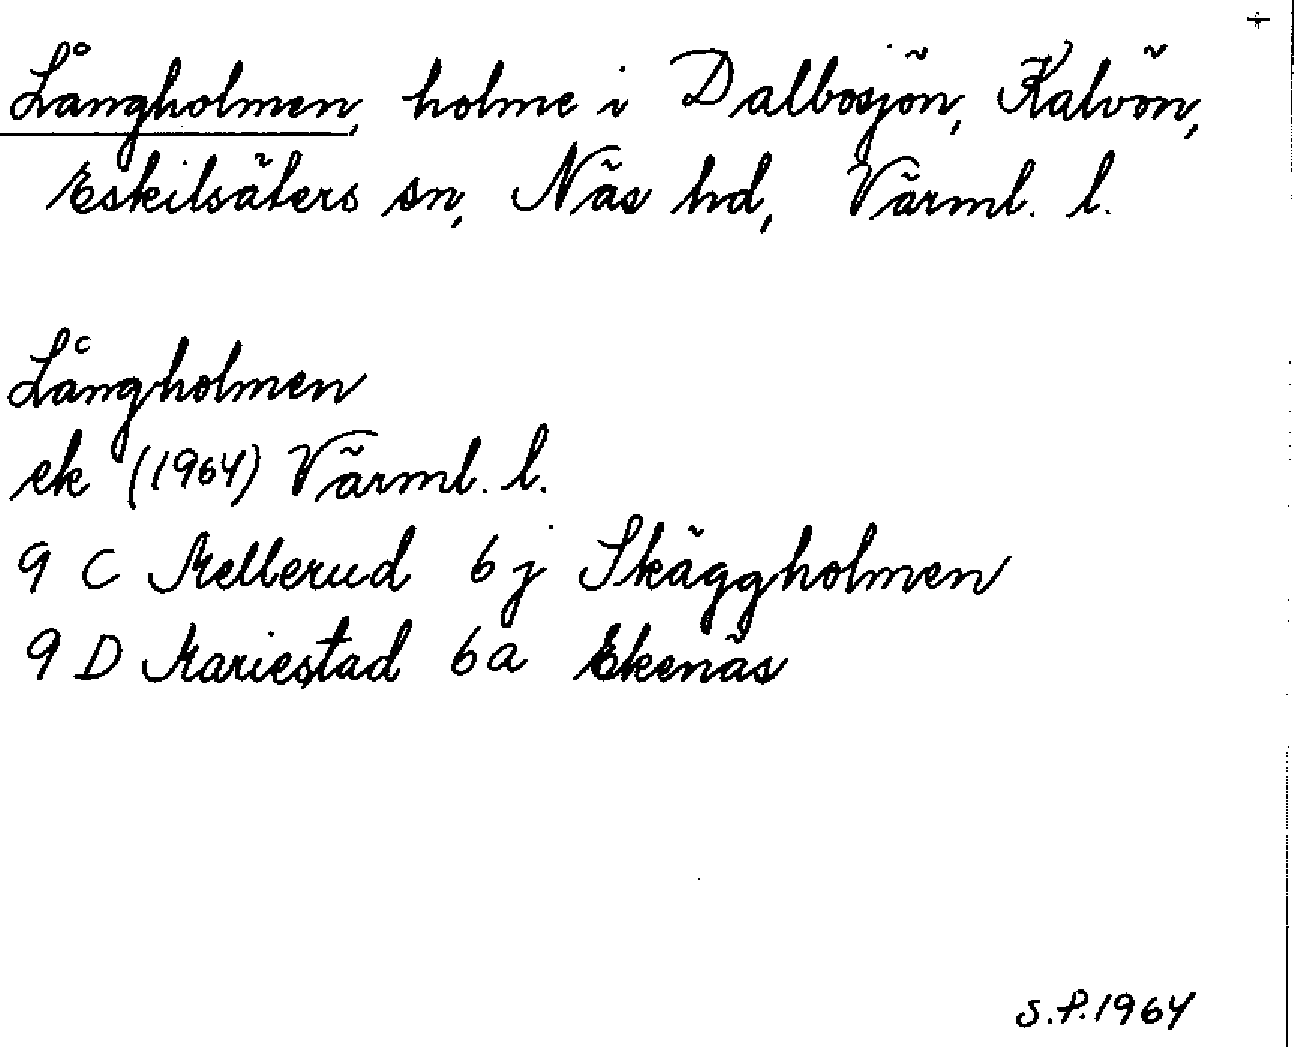 Långholmen, holme i Dalbosjön, Kalvön,
Eskilsäters sn, Näs hd, Värml. l.
Långholmen
ek (1964) Värml. l.
9 C Mellerud 6 j Skäggholmen
9 D Mariestad 6 a Ekenäs
S.P. 1964